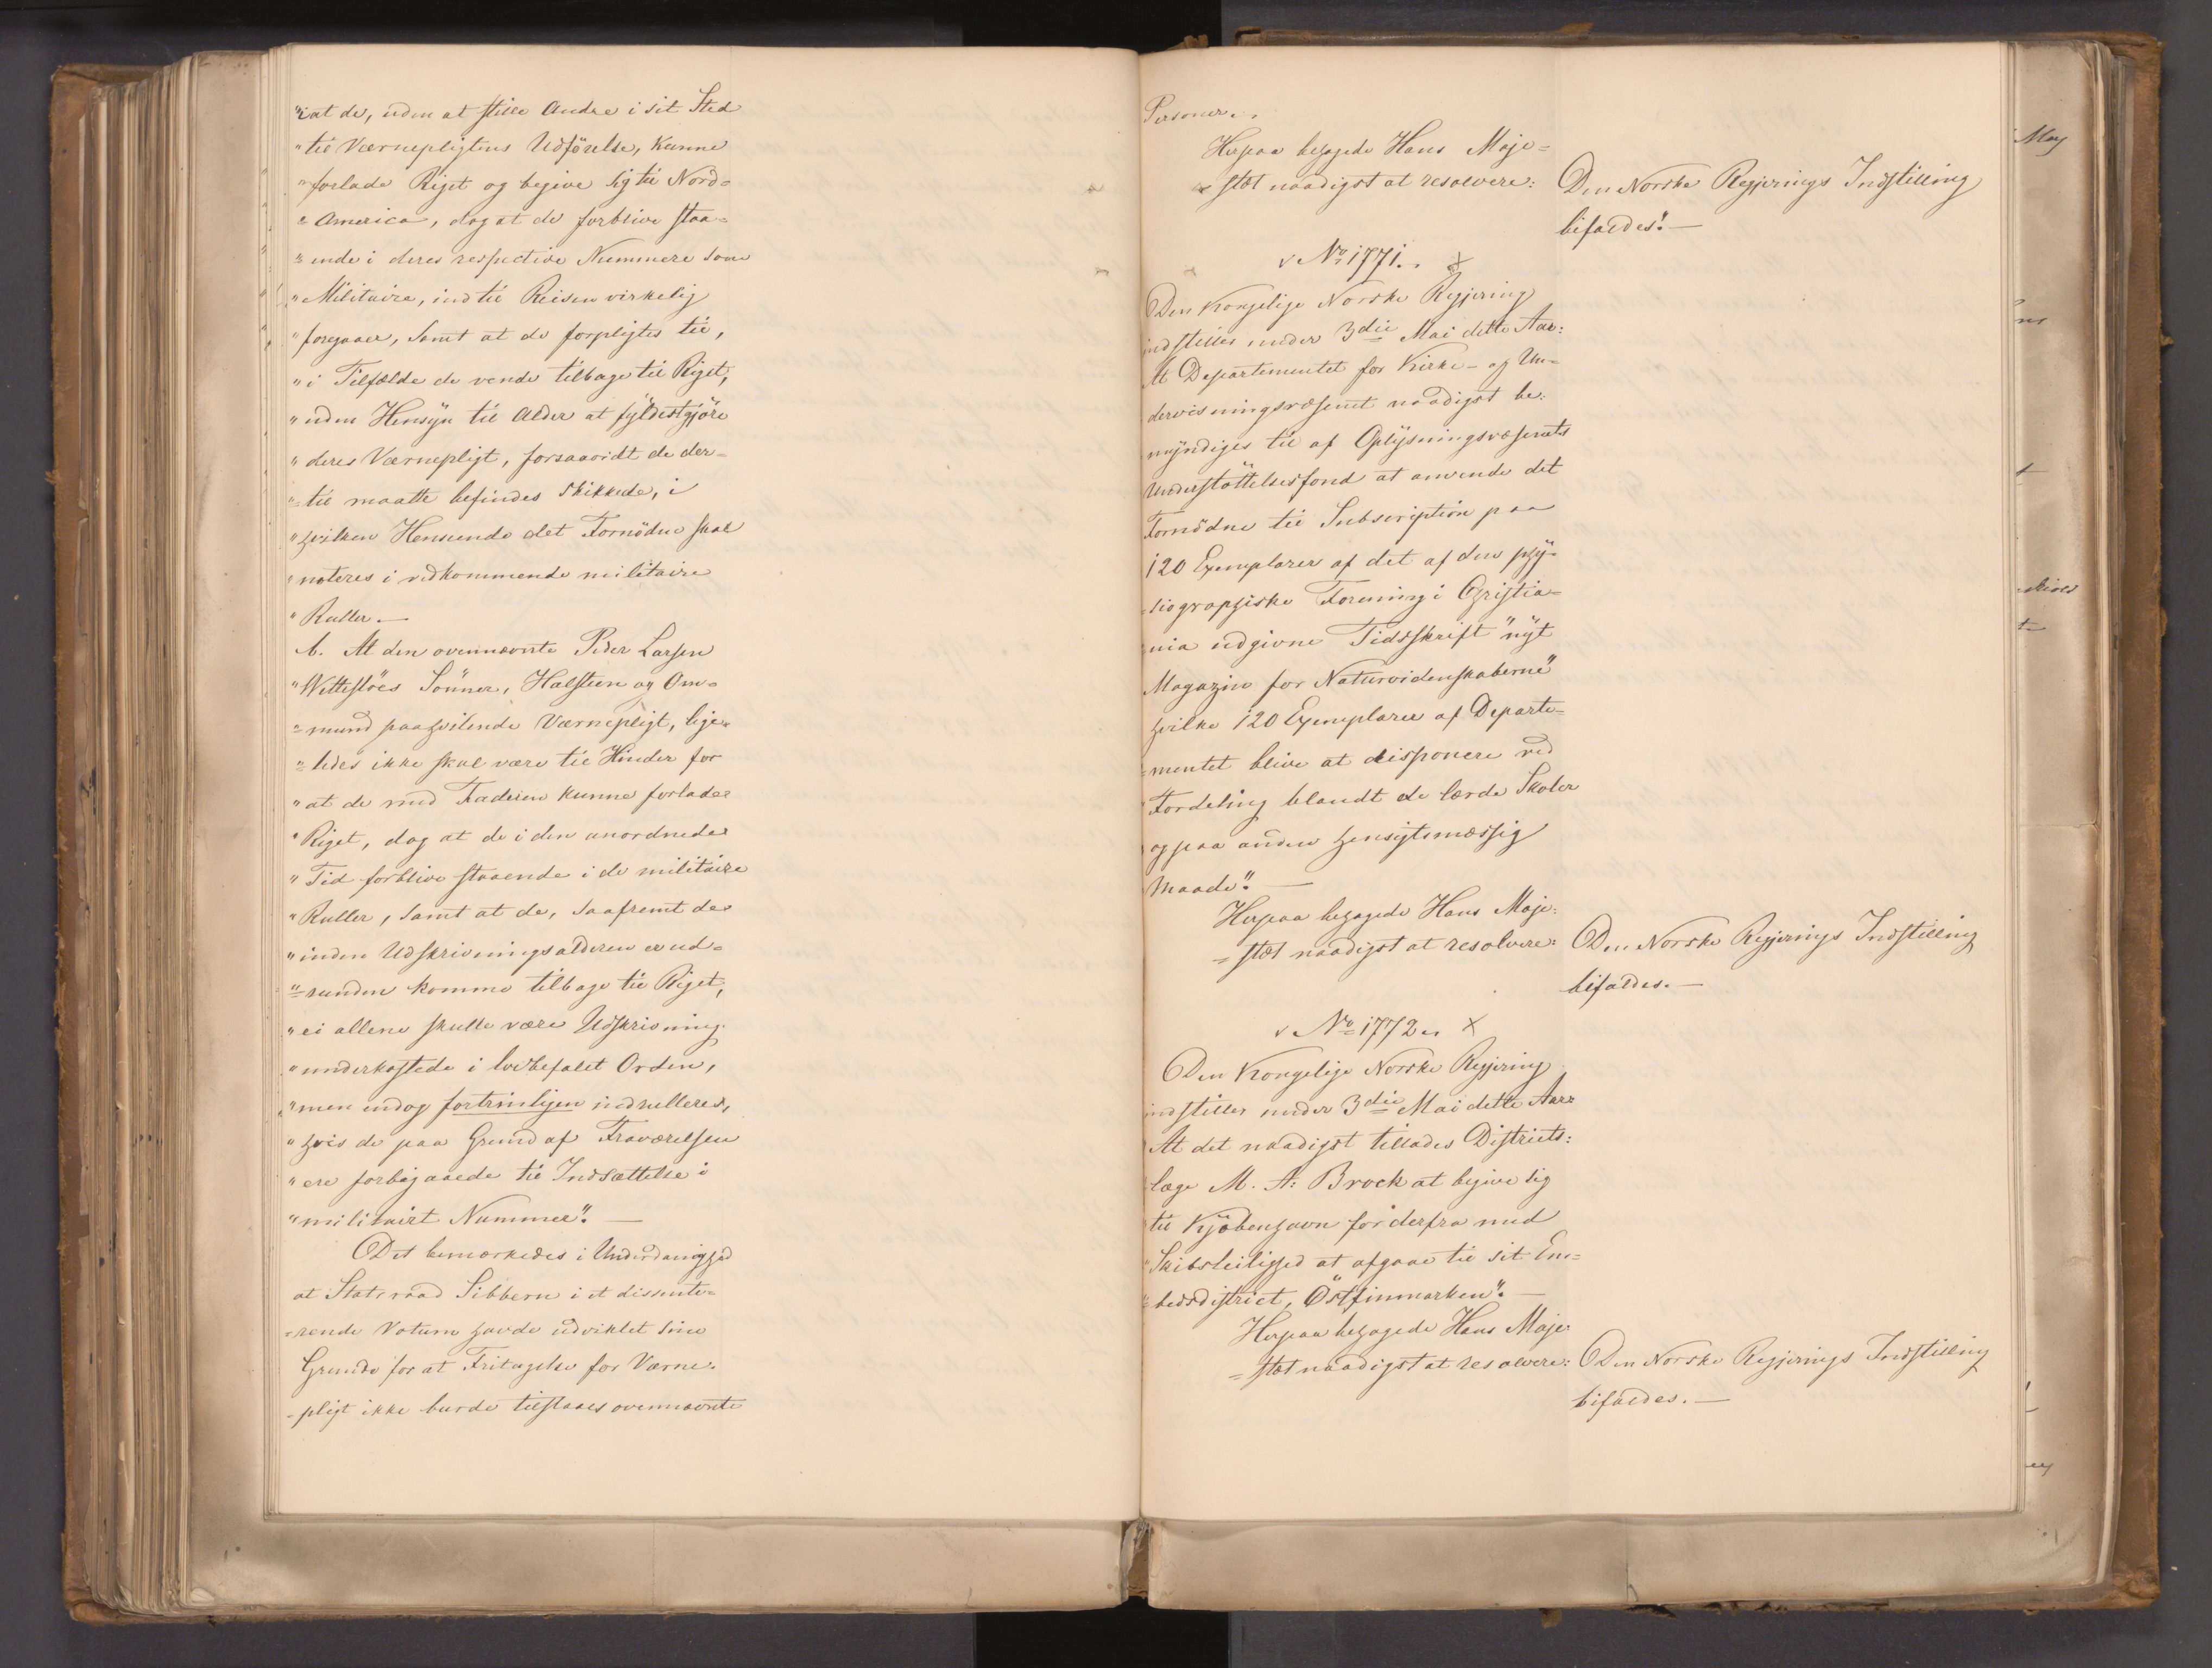 "at de, uden at stille Andre i sit Sted
"til Værnepligtens Udförelse, kunne
"forlade Riget og begive sig til Nord=
"=America, dog at de forblive staa=
"=ende i deres respective Nummere som
"Militaire, indtil Reisen virkelig
"foregaaer, samt at de forpligtes til,
"i Tilfælde de vende tilbage til Riget,
"uden Hensyn til Alder at fyldestgjöre
"deres Værnepligt, forsaavidt de der=
"=til maatte befindes skikkede, i
"hvilken Henseende det Fornödne skal
"noteres i vedkommende militaire
"Ruller.—
b. At den ovennævnte Peder Larsen
"Wettestöes Sönner, Halsteen og Om=
"=mund paahvilende Værnepligt, lige=
"=ledes ikke skal være til Hinder for
"at de med Faderen kunne forlade
"Riget, dog at de i den anordnede
"Tid forblive staaende i de militaire
"Ruller, samt at de, saafremt de
"inden Udskrivningsalderen er ud=
"=runden komme tilbage til Riget,
"ei allene skulle være Udskrivning
"underkastede i lovbefalet Orden,
"men endog fortrinligen indrulleres,
"hvis de paa Grund af Fraværelsen
"ere forbigaaede til Indsættelse i
"militairt Nummer".—
Det bemærkedes i Underdanighed
at Statsraad Sibbern i et dissente=
=rende Votum havde udviklet sine
Grunde for at Fritagelse for Værne=
=pligt ikke burde tilstaaes ovennævnte
Personer.
Herpaa behagede Hans Maje=
=stæt naadigst at resolvere:
Den Norske Regjerings Indstilling
bifaldes!—
No 1771.
Den Kongelige Norske Regjering
indstiller under 3die Mai dette Aar:
At Departementet for Kirke- og Un=
dervisningsvæsenet naadigst be=
myndiges til af Oplysningsvæsenets
Understöttelsesfond at anvende det
Fornödne til Subscription paa
120 Exemplarer af det af den phy=
siographiske Forening i Christia=
nia udgivne Tidsskrift "nyt
Magazin for Naturvidenskaberne"
hvilke 120 Exemplarer af Departe=
mentet blive at disponere ved
Fordeling blandt de lærde Skoler
og paa anden hensigtsmæssig
Maade".—
Herpaa behagede Hans Maje=
=stæt naadigst at resolvere:
Den Norske Regjerings Indstilling
bifaldes.—
No 1772.
Den Kongelige Norske Regjering
indstiller under 3die Mai dette Aar:
At det naadigst tillades Districts=
læge M. A: Brock at begive sig
til Kjöbenhavn for derfra med
"Skibsleilighed at afgaae til sit Em=
"=bedsdistrict, Östfinmarken".—
Herpaa behagede Hans Maje=
=stæt naadigst at resolvere:
Den Norske Regjerings Indstilling
bifaldes.—